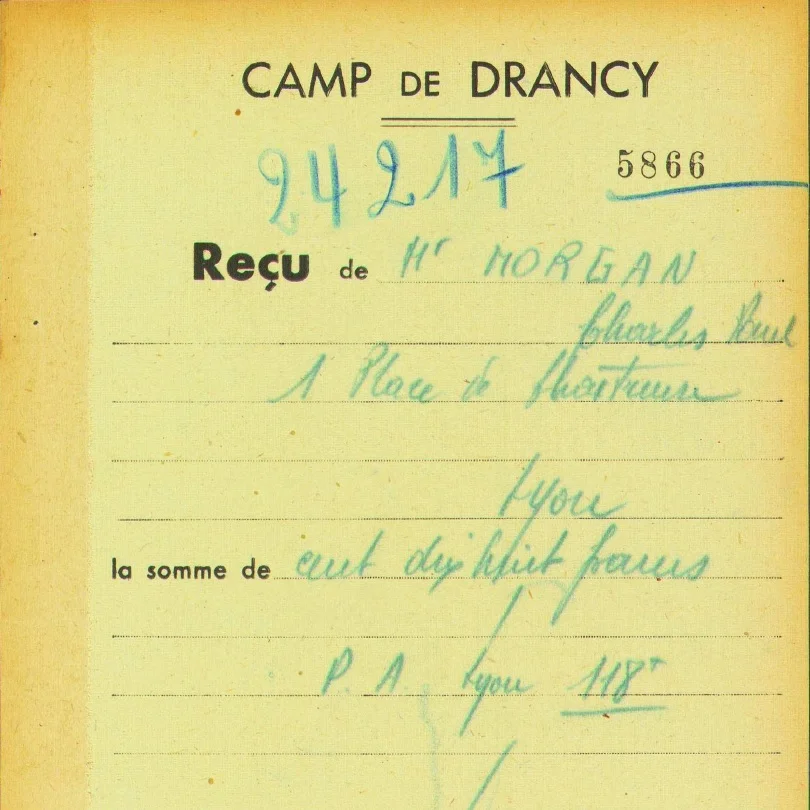 CAMP DE DRANCY
24217
5866
Reçu de Mr MORGAN
Charles Paul
1 Place de Chartreuse
Lyon
la somme de cent dix huit francs
P. A. Lyon 118 f